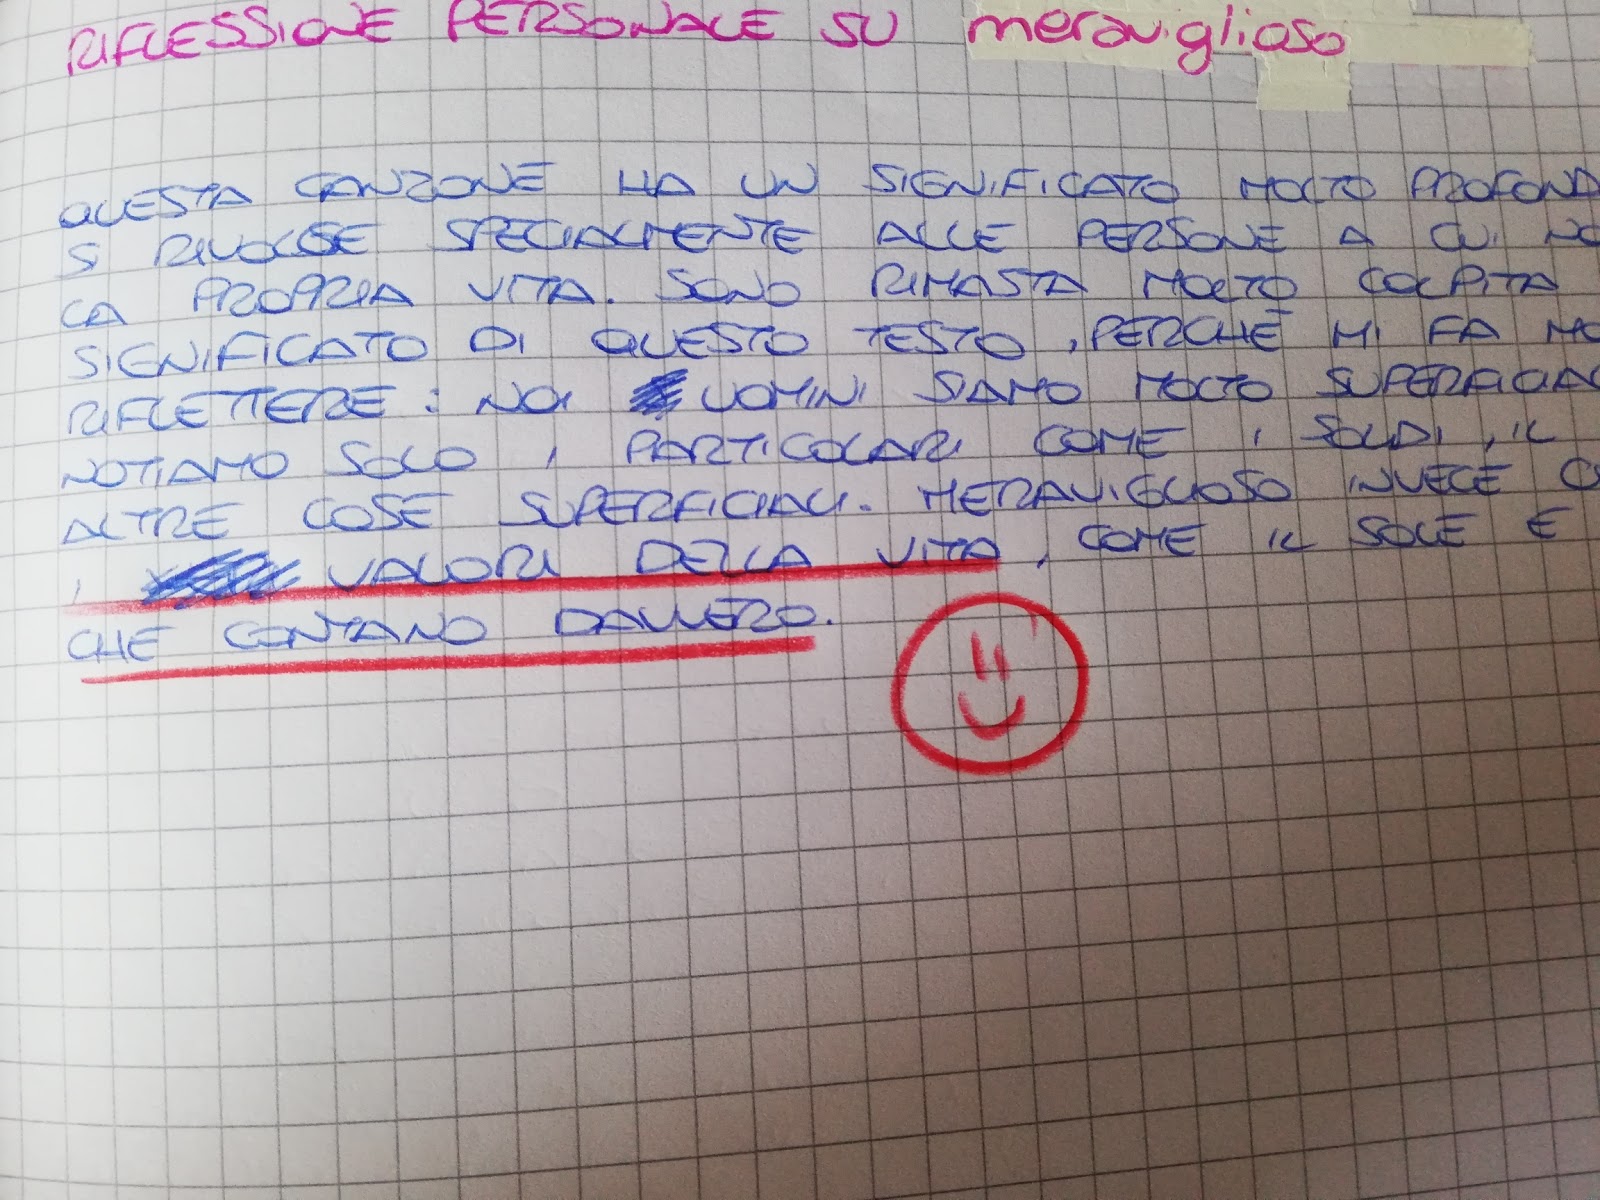 RIFLESSIONE PERSONALE SU meraviglioso
QUESTA CANZONE HA UN SIGNIFICATO MOLTO PROFOND
SI RIVOLGE SPECIALMENTE ALLE PERSONE A CUI NO
LA PROPRIA VITA. SONO RIMASTA MOLTO COLPITA
SIGNIFICATO DI QUESTO TESTO, PERCHÈ MI FA MO
RIFLETTERE: NOI UOMINI SIAMO MOLTO SUPERFICIAL
NOTIAMO SOLO I PARTICOLARI COME I SOLDI, IL
ALTRE COSE SUPERFICIALI. MERAVIGLIOSO INVECE
I VALORI DELLA VITA, COME IL SOLE E
CHE CONTANO DAVVERO.